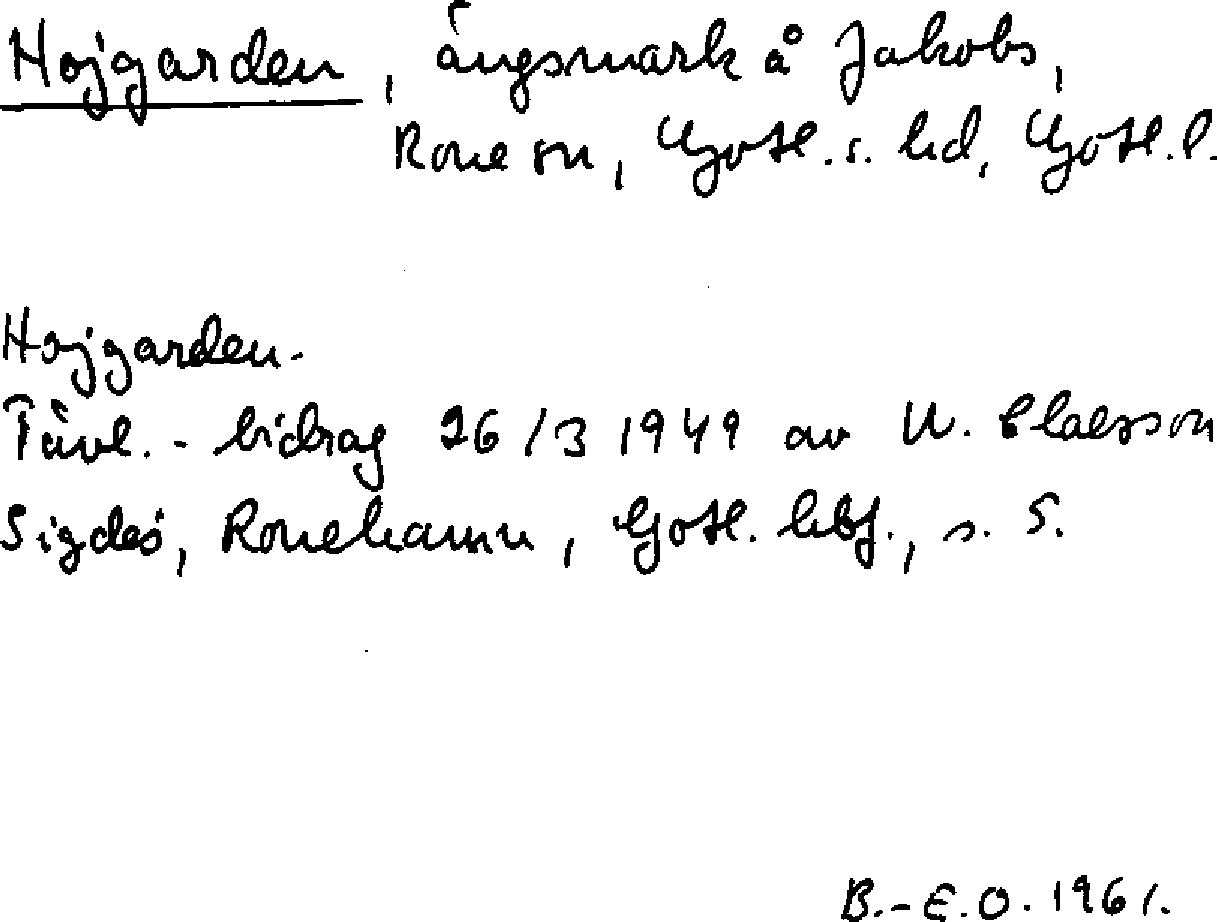 Hojgarden, ängsmark å Jakobs,
Rone sn, Gotl. s. hd, Gotl. l.
Hojgarden.
Tävl.-bidrag 26/3 1949 av W. Claesson
Sigdes, Ronehamn, Gotl. hbf., s. 5.
B.-E.O. 1961.